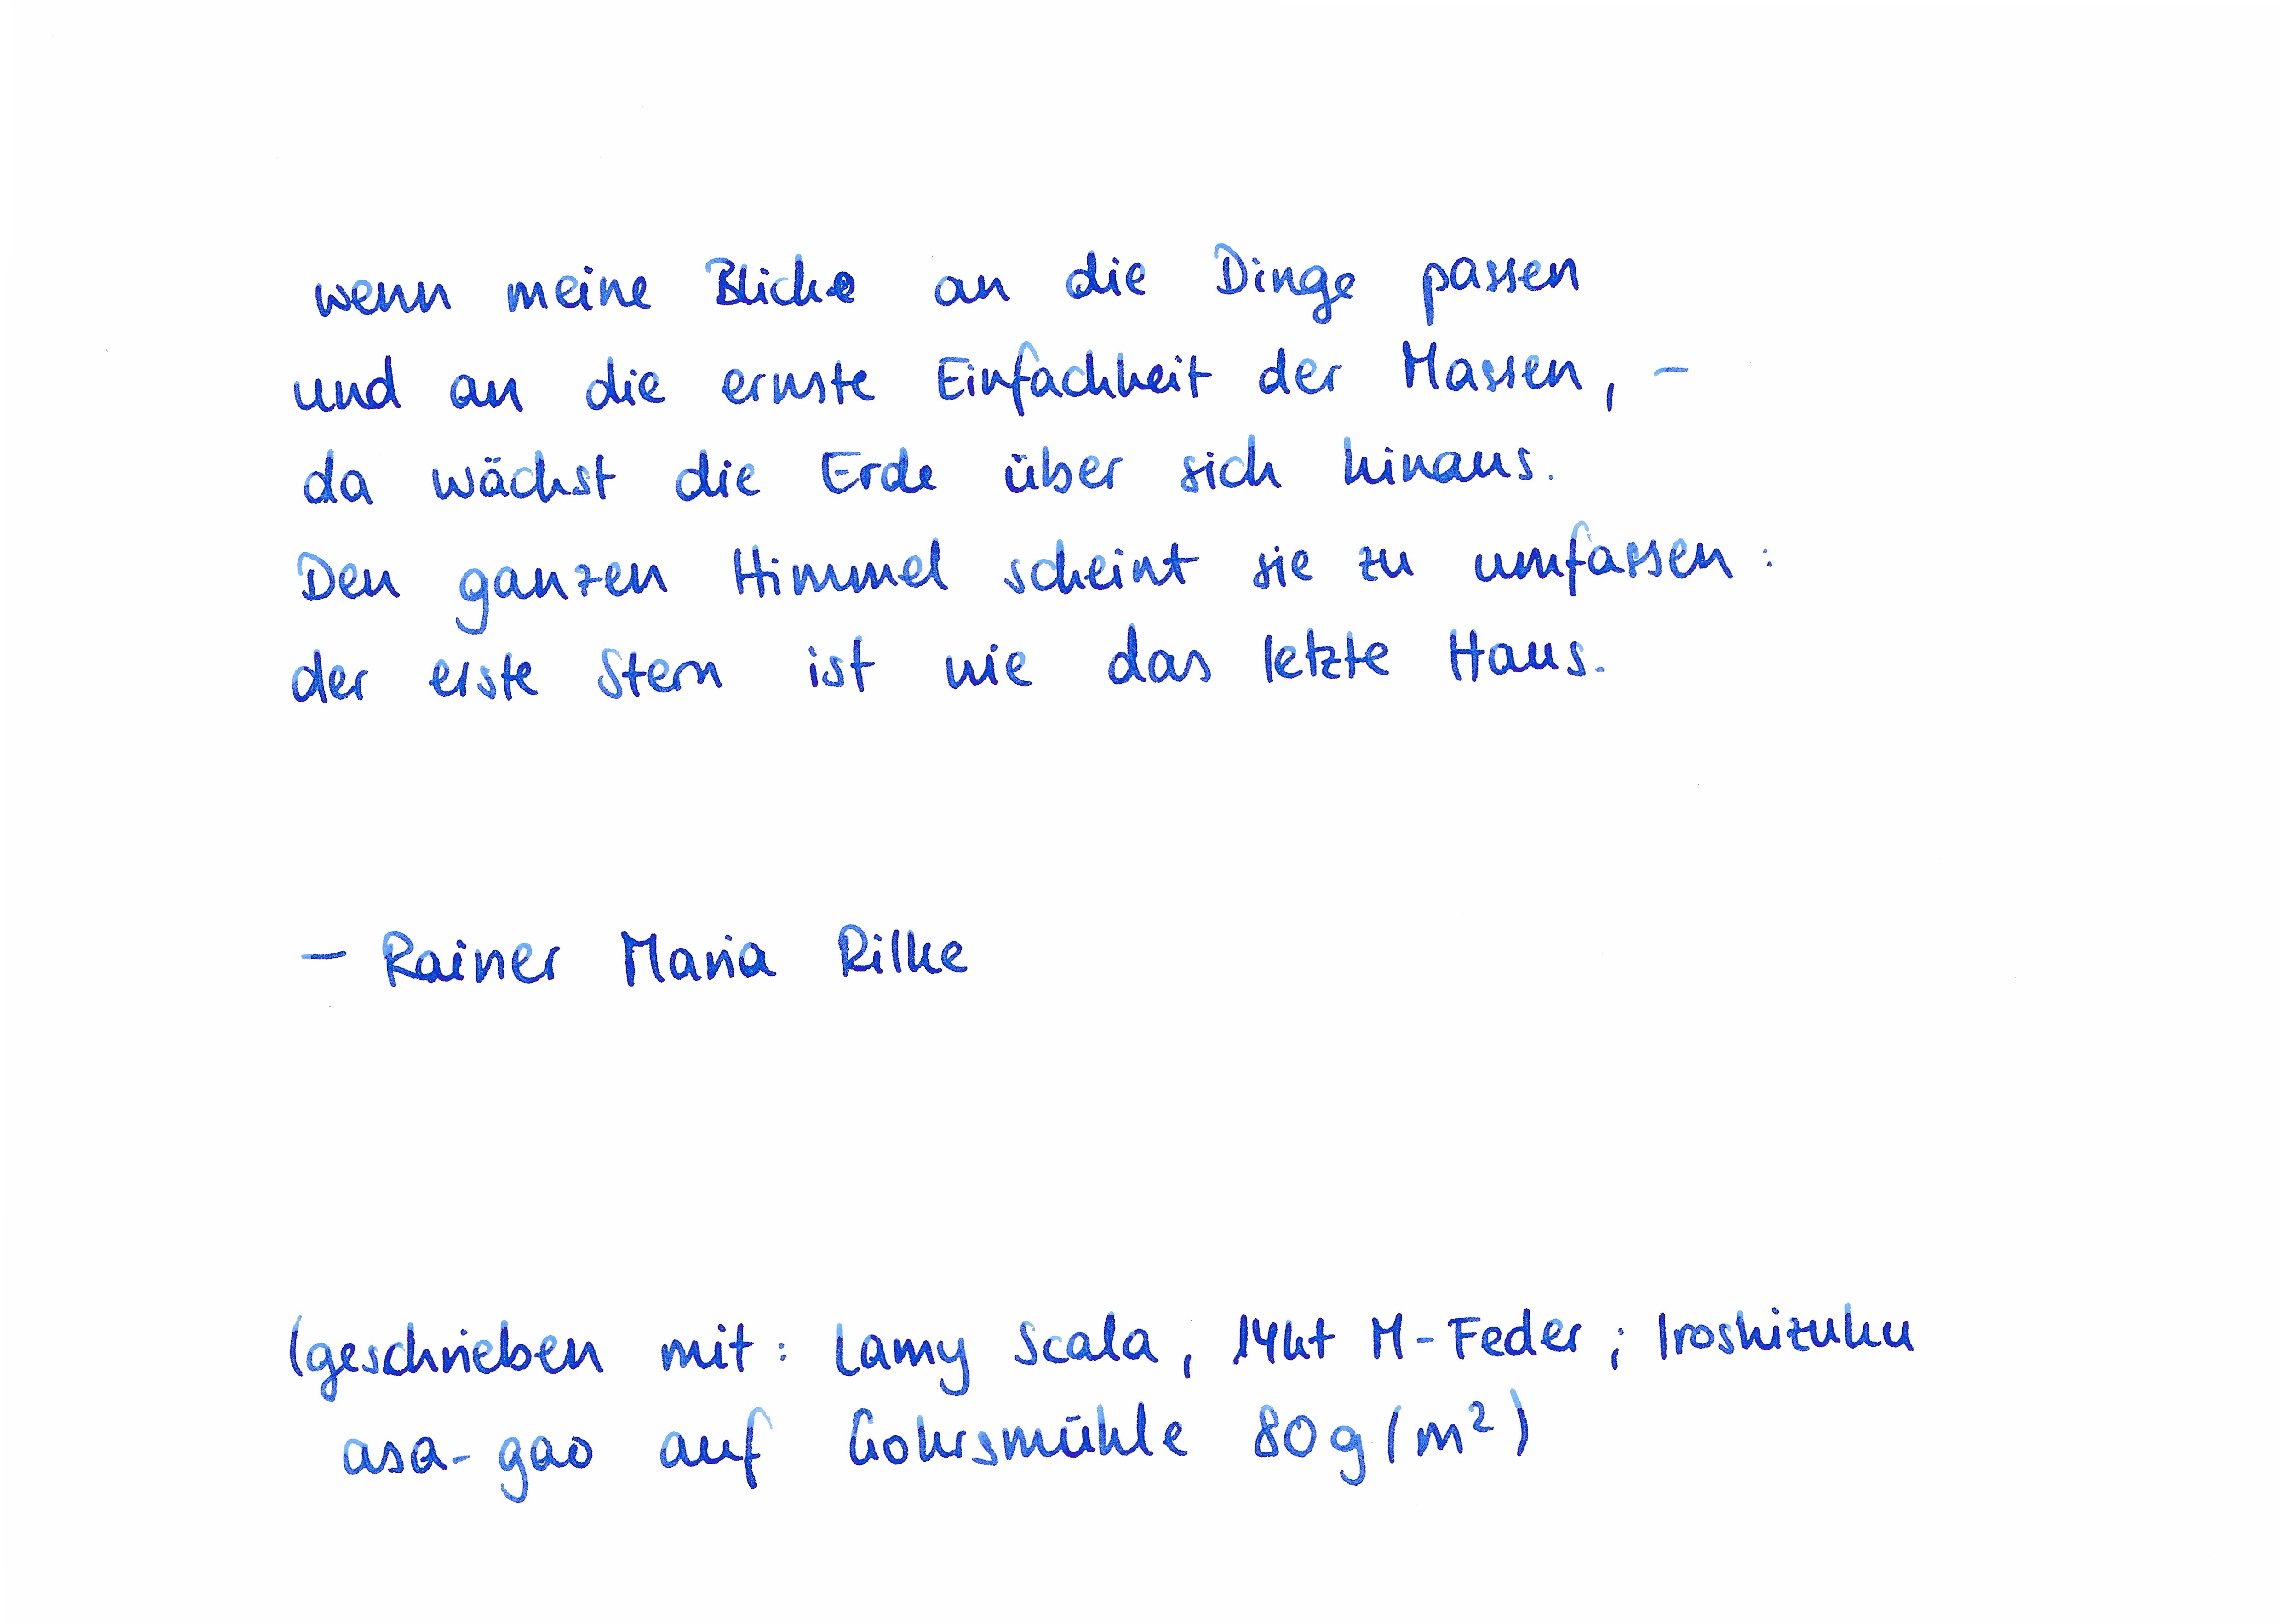 wenn meine Blicke an die Dinge passen
und an die ernste Einfachheit der Massen, –
da wächst die Erde über sich hinaus.
Den ganzen Himmel scheint sie zu umfassen:
der erste Stern ist wie das letzte Haus.
– Rainer Maria Rilke
(geschrieben mit: Lamy Scala, 14kt M-Feder; Iroshizuku
asa-gao auf Gohrsmühle 80g(m²)